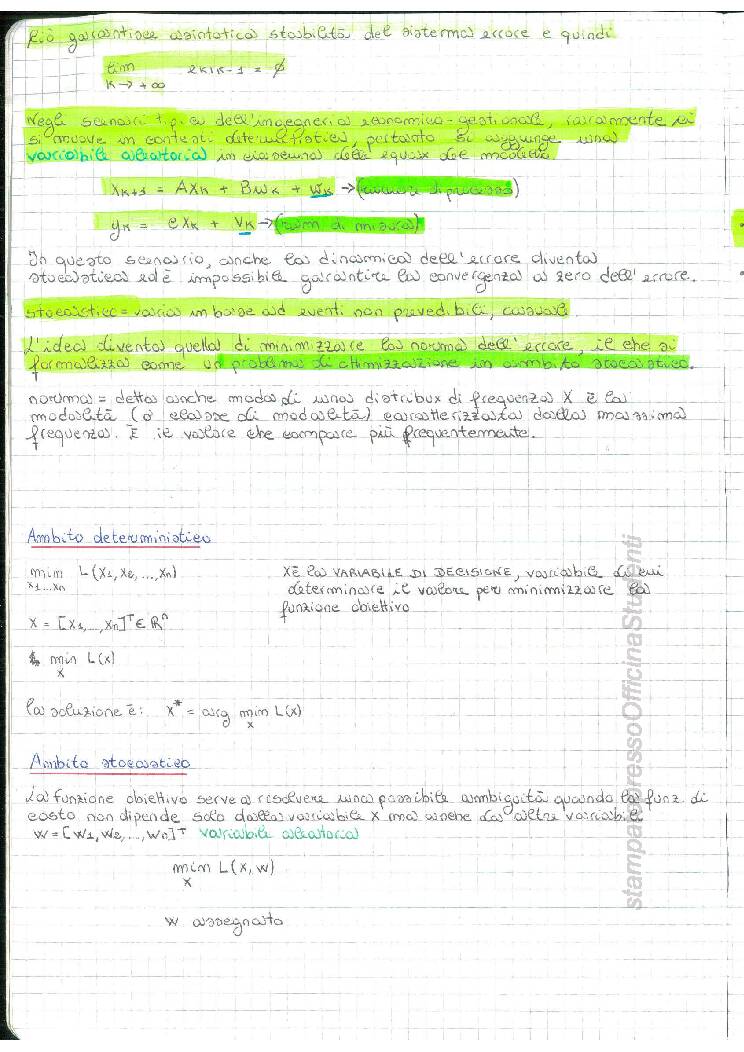 Ciò garantisce asintotica stabilità del sistema errore e quindi
lim e k|k-1 = ∅
k→+∞
Negli scenari tipici dell'ingegneria economico-gestionale, raramente ci
si muove in contesti deterministici, pertanto si aggiunge una
variabile aleatoria in ciascuna delle equaz del modello
x_{k+1} = Ax_k + Bu_k + w_k → (rumore di processo)
y_k = Cx_k + v_k → (rum di misura)
In questo scenario, anche la dinamica dell'errore diventa
stocastica ed è impossibile garantire la convergenza a zero dell'errore.
stocastico = varia in base ad eventi non prevedibili, casuali
L'idea diventa quella di minimizzare la norma dell'errore, il che si
formalizza come un problema di ottimizzazione in ambito stocastico.
norma = detta anche moda di una distribuz di frequenza X è la
modalità (o classe di modalità) caratterizzata dalla massima
frequenza. È il valore che compare più frequentemente.
Ambito deterministico
min L(x1, x2, ..., xn)
x1...xn
X È la VARIABILE DI DECISIONE, variabile di cui
determinare il valore per minimizzare la
funzione obiettivo
x = [x1, ..., xn]^T ∈ R^n
min L(x)
x
la soluzione è: x* = arg min L(x)
x
Ambito stocastico
La funzione obiettivo serve a risolvere una possibile ambiguità quando la funz. di
costo non dipende solo dalla variabile x ma anche da altre variabili
w = [w1, w2, ..., wn]^T variabile aleatoria
min L(x, w)
x
w assegnato
stampatopressoOfficinaStudenti